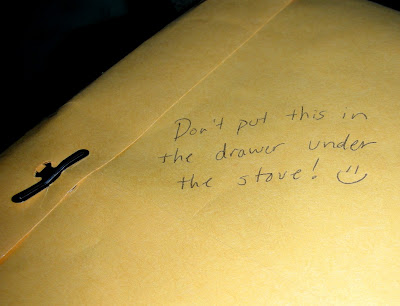 Don't put this in
the drawer under
the stove! :)